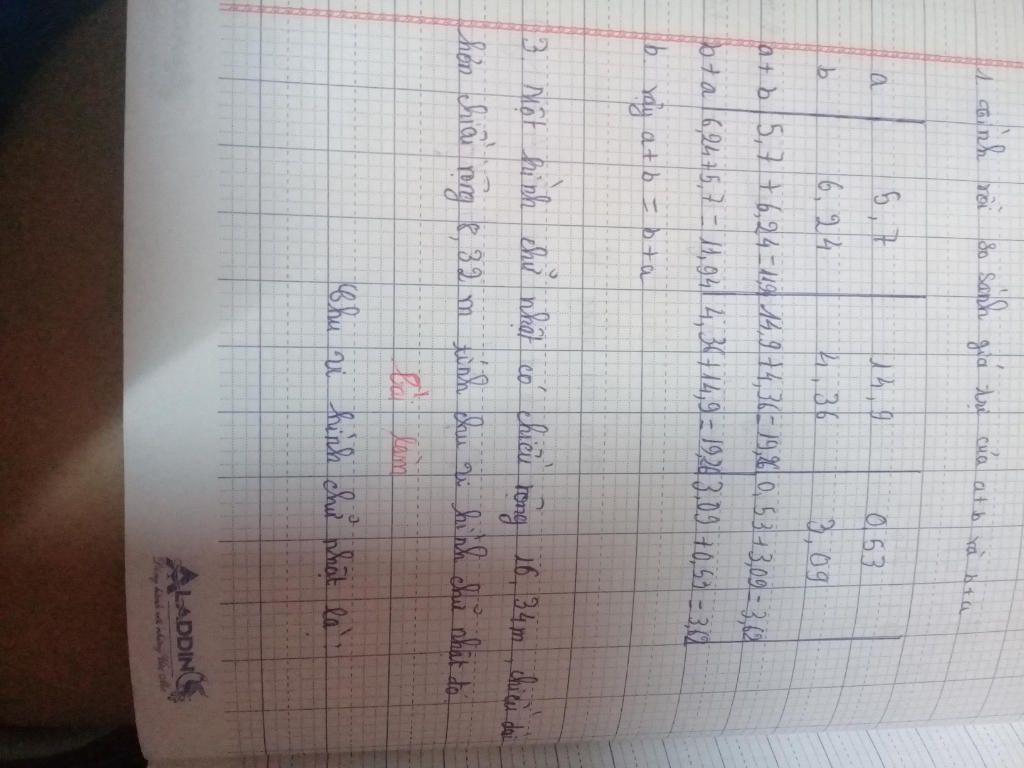 1 tính rồi so sánh giá trị của a+b và b+a
a 5,7 14,9 0,53
b 6,24 4,36 3,09
a+b 5,7+6,24=11,94 14,9+4,36=19,26 0,53+3,09=3,62
b+a 6,24+5,7=11,94 4,36+14,9=19,26 3,09+0,53=3,62
b vậy a+b=b+a
3 Một hình chữ nhật có chiều rộng 16,34m, chiều dài
hơn chiều rộng 8,32 m tính chu vi hình chữ nhật đó
bài làm
Chu vi hình chữ nhật là
ALADDIN